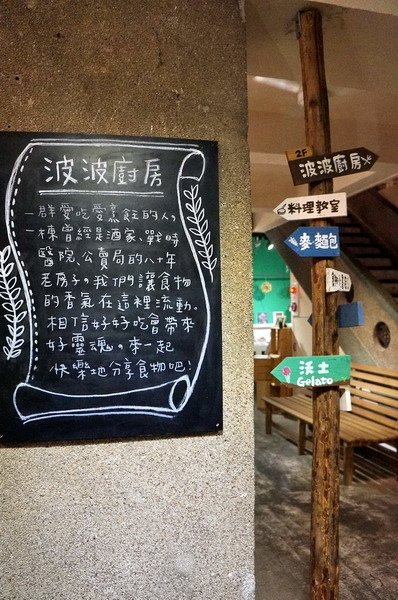 波波廚房
一群愛吃愛烹飪的人。
一棟曾經是酒家、戰時
醫院、公賣局的八十年
老房子。我們讓食物
的香氣在這裡流動。
相信好好吃會帶來
好靈魂。來一起
快樂地分享食物吧！
2F
波波廚房
料理教室
麥麵包
沃土
Gelato